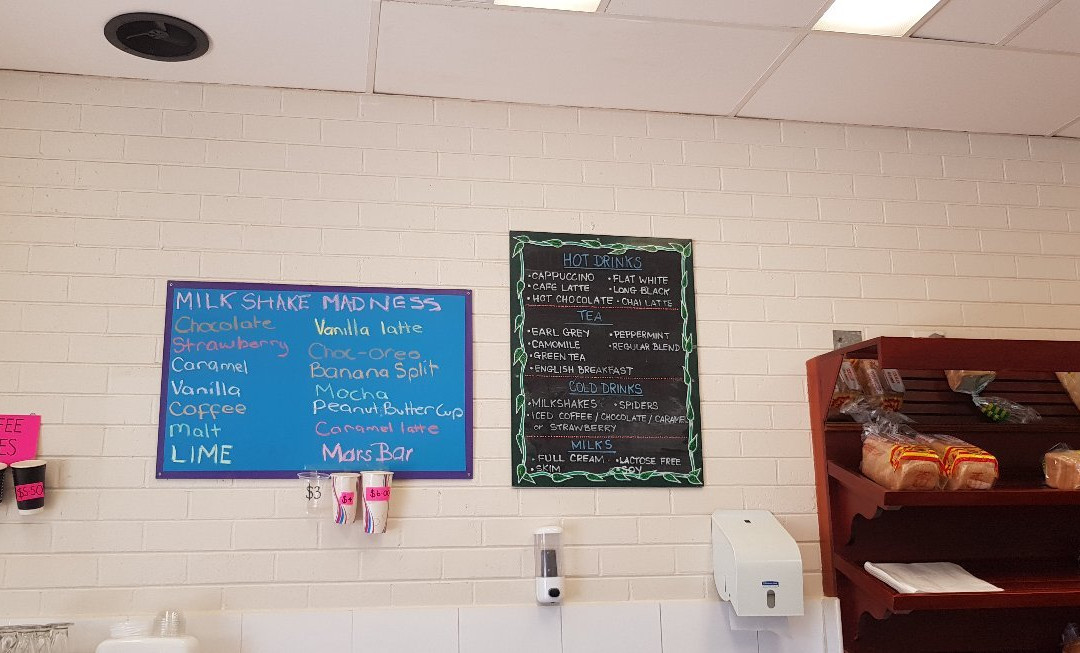 MILK SHAKE MADNESS
Chocolate Vanilla latte
Strawberry Choc-oreo
Caramel Banana Split
Vanilla Mocha
Coffee Peanut Butter Cup
Malt Caramel latte
LIME Mars Bar
$5.50
$3
$4
$6.00
HOT DRINKS
• CAPPUCCINO • FLAT WHITE
• CAFE LATTE • LONG BLACK
• HOT CHOCOLATE • CHAI LATTE
TEA
• EARL GREY • PEPPERMINT
• CAMOMILE • REGULAR BLEND
• GREEN TEA
• ENGLISH BREAKFAST
COLD DRINKS
• MILKSHAKES • SPIDERS
• ICED COFFEE / CHOCOLATE / CARAMEL
or STRAWBERRY
MILKS
• FULL CREAM • LACTOSE FREE
• SKIM • SOY